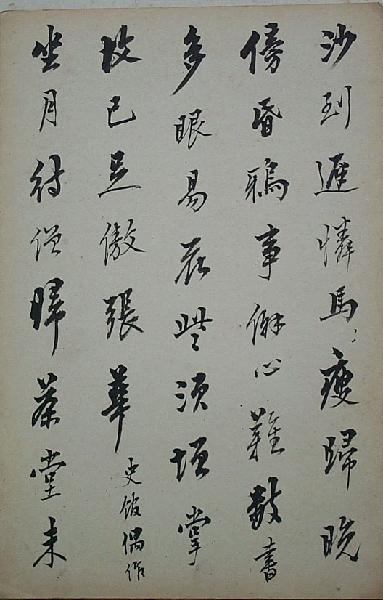 沙到遲憐馬瘦歸晚
傍昏鴉事心難數書
多眼易花些須掌
故已足傲張華 史館偶作
坐月待僧歸茶堂未